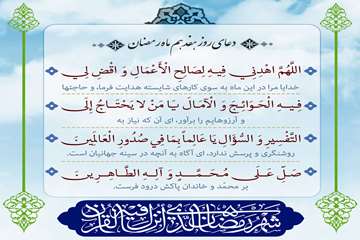 دعای روز هفدهم ماه رمضان
اللَّهُمَّ اهْدِنِي فِيهِ لِصَالِحِ الْأَعْمَالِ وَ اقْضِ لِي
خدایا مرا در این ماه به سوی کارهای شایسته هدایت فرما، و حاجتها
فِيهِ الْحَوَائِجَ وَ الْآمَالَ يَا مَنْ لا يَحْتَاجُ إِلَى
و آرزوهایم را برآور، ای آن که نیاز به
التَّفْسِيرِ وَ السُّؤَالِ يَا عَالِماً بِمَا فِي صُدُورِ الْعَالَمِينَ
روشنگری و پرسش ندارد، ای آگاه به آنچه در سینه جهانیان است.
صَلِّ عَلَى مُحَمَّدٍ وَ آلِهِ الطَّاهِرِينَ
بر محمّد و خاندان پاکش درود فرست.
شهر رمضان الذی انزل فیه القرآن